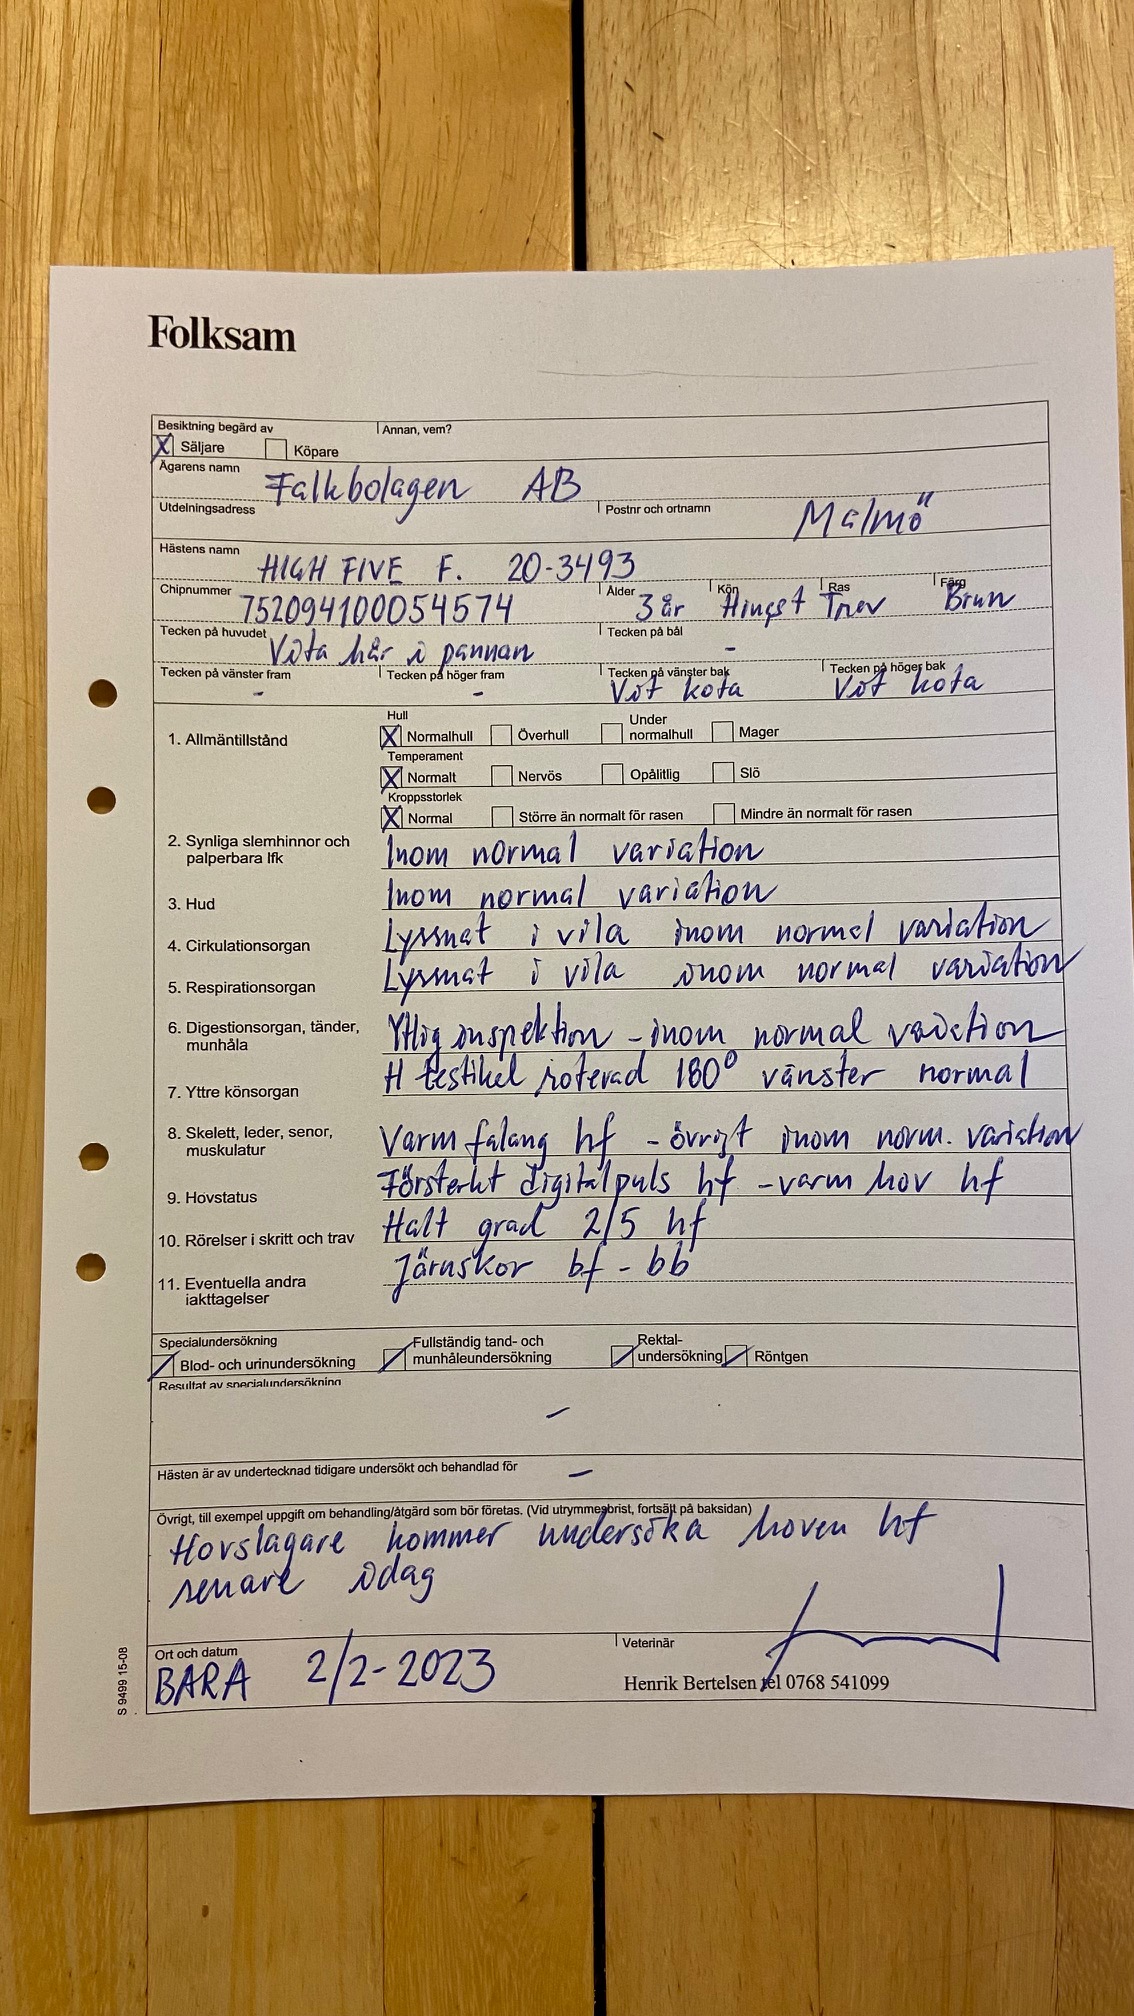 Folksam
Besiktning begärd av
Annan, vem?
X Säljare
Köpare
Ägarens namn
Falkbolagen AB
Utdelningsadress
Postnr och ortnamn
Malmö
Hästens namn
HIGH FIVE F. 20-3493
Chipnummer
752094100054574
Ålder
3 år
Kön
Hingst
Ras
Trav
Färg
Brun
Tecken på huvudet
Vita hår i pannan
Tecken på bål
-
Tecken på vänster fram
-
Tecken på höger fram
-
Tecken på vänster bak
Vit kota
Tecken på höger bak
Vit kota
1. Allmäntillstånd
Hull
X Normalhull
Överhull
Under
normalhull
Mager
Temperament
X Normalt
Nervös
Opålitlig
Slö
Kroppsstorlek
X Normal
Större än normalt för rasen
Mindre än normalt för rasen
2. Synliga slemhinnor och
palperbara lfk
Inom normal variation
3. Hud
Inom normal variation
4. Cirkulationsorgan
Lyssnat i vila inom normal variation
5. Respirationsorgan
Lyssnat i vila inom normal variation
6. Digestionsorgan, tänder,
munhåla
Ytlig inspektion - inom normal variation
7. Yttre könsorgan
H testikel roterad 180° vänster normal
8. Skelett, leder, senor,
muskulatur
Varm falang hf - övrigt inom norm. variation
9. Hovstatus
Försterkt digitalpuls hf - varm hov hf
10. Rörelser i skritt och trav
Halt grad 2/5 hf
11. Eventuella andra
iakttagelser
Järnskor bf - bb
Specialundersökning
Blod- och urinundersökning
Fullständig tand- och
munhåleundersökning
Rektal-
undersökning
Röntgen
Resultat av specialundersökning
-
Hästen är av undertecknad tidigare undersökt och behandlad för
-
Övrigt, till exempel uppgift om behandling/åtgärd som bör företas. (Vid utrymmesbrist, fortsätt på baksidan)
Hovslagare kommer undersöka hoven hf
senare idag
Ort och datum
BARA 2/2-2023
Veterinär
Henrik Bertelsen tel 0768 541099
S 9499 15-08